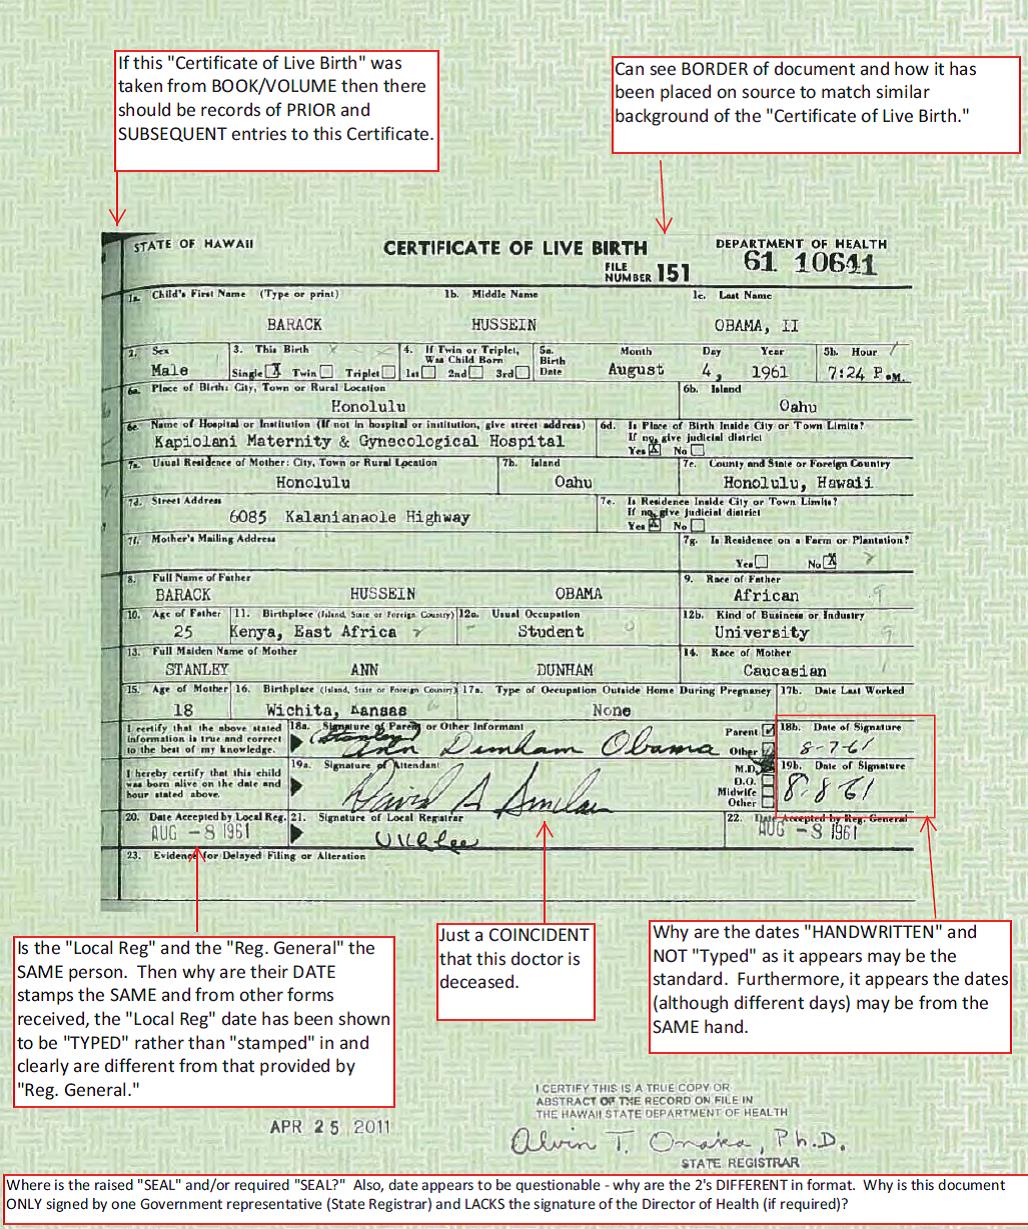 If this "Certificate of Live Birth" was
taken from BOOK/VOLUME then there
should be records of PRIOR and
SUBSEQUENT entries to this Certificate.
Can see BORDER of document and how it has
been placed on source to match similar
background of the "Certificate of Live Birth."
STATE OF HAWAII
CERTIFICATE OF LIVE BIRTH
DEPARTMENT OF HEALTH
FILE NUMBER 151
61 10641
1a. Child's First Name (Type or print)
1b. Middle Name
1c. Last Name
BARACK
HUSSEIN
OBAMA, II
2. Sex
Male
3. This Birth
Single X Twin Triplet
4. If Twin or Triplet,
Was Child Born
1st 2nd 3rd
5a.
Birth
Date
Month Day Year
August 4, 1961
5b. Hour
7:24 P.M.
6a. Place of Birth: City, Town or Rural Location
Honolulu
6b. Island
Oahu
6c. Name of Hospital or Institution (If not in hospital or institution, give street address)
Kapiolani Maternity & Gynecological Hospital
6d. Is Place of Birth Inside City or Town Limits?
If no, give judicial district
Yes X No
7a. Usual Residence of Mother: City, Town or Rural Location
Honolulu
7b. Island
Oahu
7c. County and State or Foreign Country
Honolulu, Hawaii
7d. Street Address
6085 Kalanianaole Highway
7e. Is Residence Inside City or Town Limits?
If no, give judicial district
Yes X No
7f. Mother's Mailing Address
7g. Is Residence on a Farm or Plantation?
Yes No X
8. Full Name of Father
BARACK HUSSEIN OBAMA
9. Race of Father
African
10. Age of Father
25
11. Birthplace (Island, State or Foreign Country)
Kenya, East Africa
12a. Usual Occupation
Student
12b. Kind of Business or Industry
University
13. Full Maiden Name of Mother
STANLEY ANN DUNHAM
14. Race of Mother
Caucasian
15. Age of Mother
18
16. Birthplace (Island, State or Foreign Country)
Wichita, Kansas
17a. Type of Occupation Outside Home During Pregnancy
None
17b. Date Last Worked
I certify that the above stated
information is true and correct
to the best of my knowledge.
18a. Signature of Parent or Other Informant
(Stanley) Ann Dunham Obama
Parent
Other
18b. Date of Signature
8-7-61
I hereby certify that this child
was born alive on the date and
hour stated above.
19a. Signature of Attendant
David A Sinclair
M.D.
D.O.
Midwife
Other
19b. Date of Signature
8-8-61
20. Date Accepted by Local Reg.
AUG -8 1961
21. Signature of Local Registrar
22. Date Accepted by Reg. General
AUG -8 1961
23. Evidence for Delayed Filing or Alteration
Is the "Local Reg" and the "Reg. General" the
SAME person. Then why are their DATE
stamps the SAME and from other forms
received, the "Local Reg" date has been shown
to be "TYPED" rather than "stamped" in and
clearly are different from that provided by
"Reg. General."
Just a COINCIDENT
that this doctor is
deceased.
Why are the dates "HANDWRITTEN" and
NOT "Typed" as it appears may be the
standard. Furthermore, it appears the dates
(although different days) may be from the
SAME hand.
APR 25 2011
I CERTIFY THIS IS A TRUE COPY OR
ABSTRACT OF THE RECORD ON FILE IN
THE HAWAII STATE DEPARTMENT OF HEALTH
Alvin T. Onaka, Ph.D.
STATE REGISTRAR
Where is the raised "SEAL" and/or required "SEAL?" Also, date appears to be questionable - why are the 2's DIFFERENT in format. Why is this document
ONLY signed by one Government representative (State Registrar) and LACKS the signature of the Director of Health (if required)?